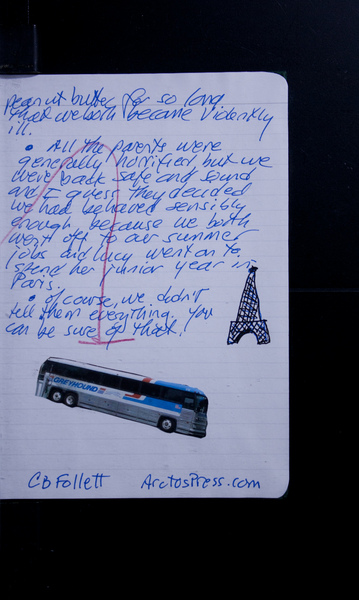 peanut butter for so long
that we both became violently
ill.
• All the parents were
generally horrified, but we
were back safe and sound
and I guess they decided
we had behaved sensibly
enough because we both
went off to our summer
jobs and Lucy went on to
spend her junior year in
Paris.
• Of course, we didn't
tell them everything. You
can be sure of that!
GREYHOUND
CB Follett ArctosPress.com